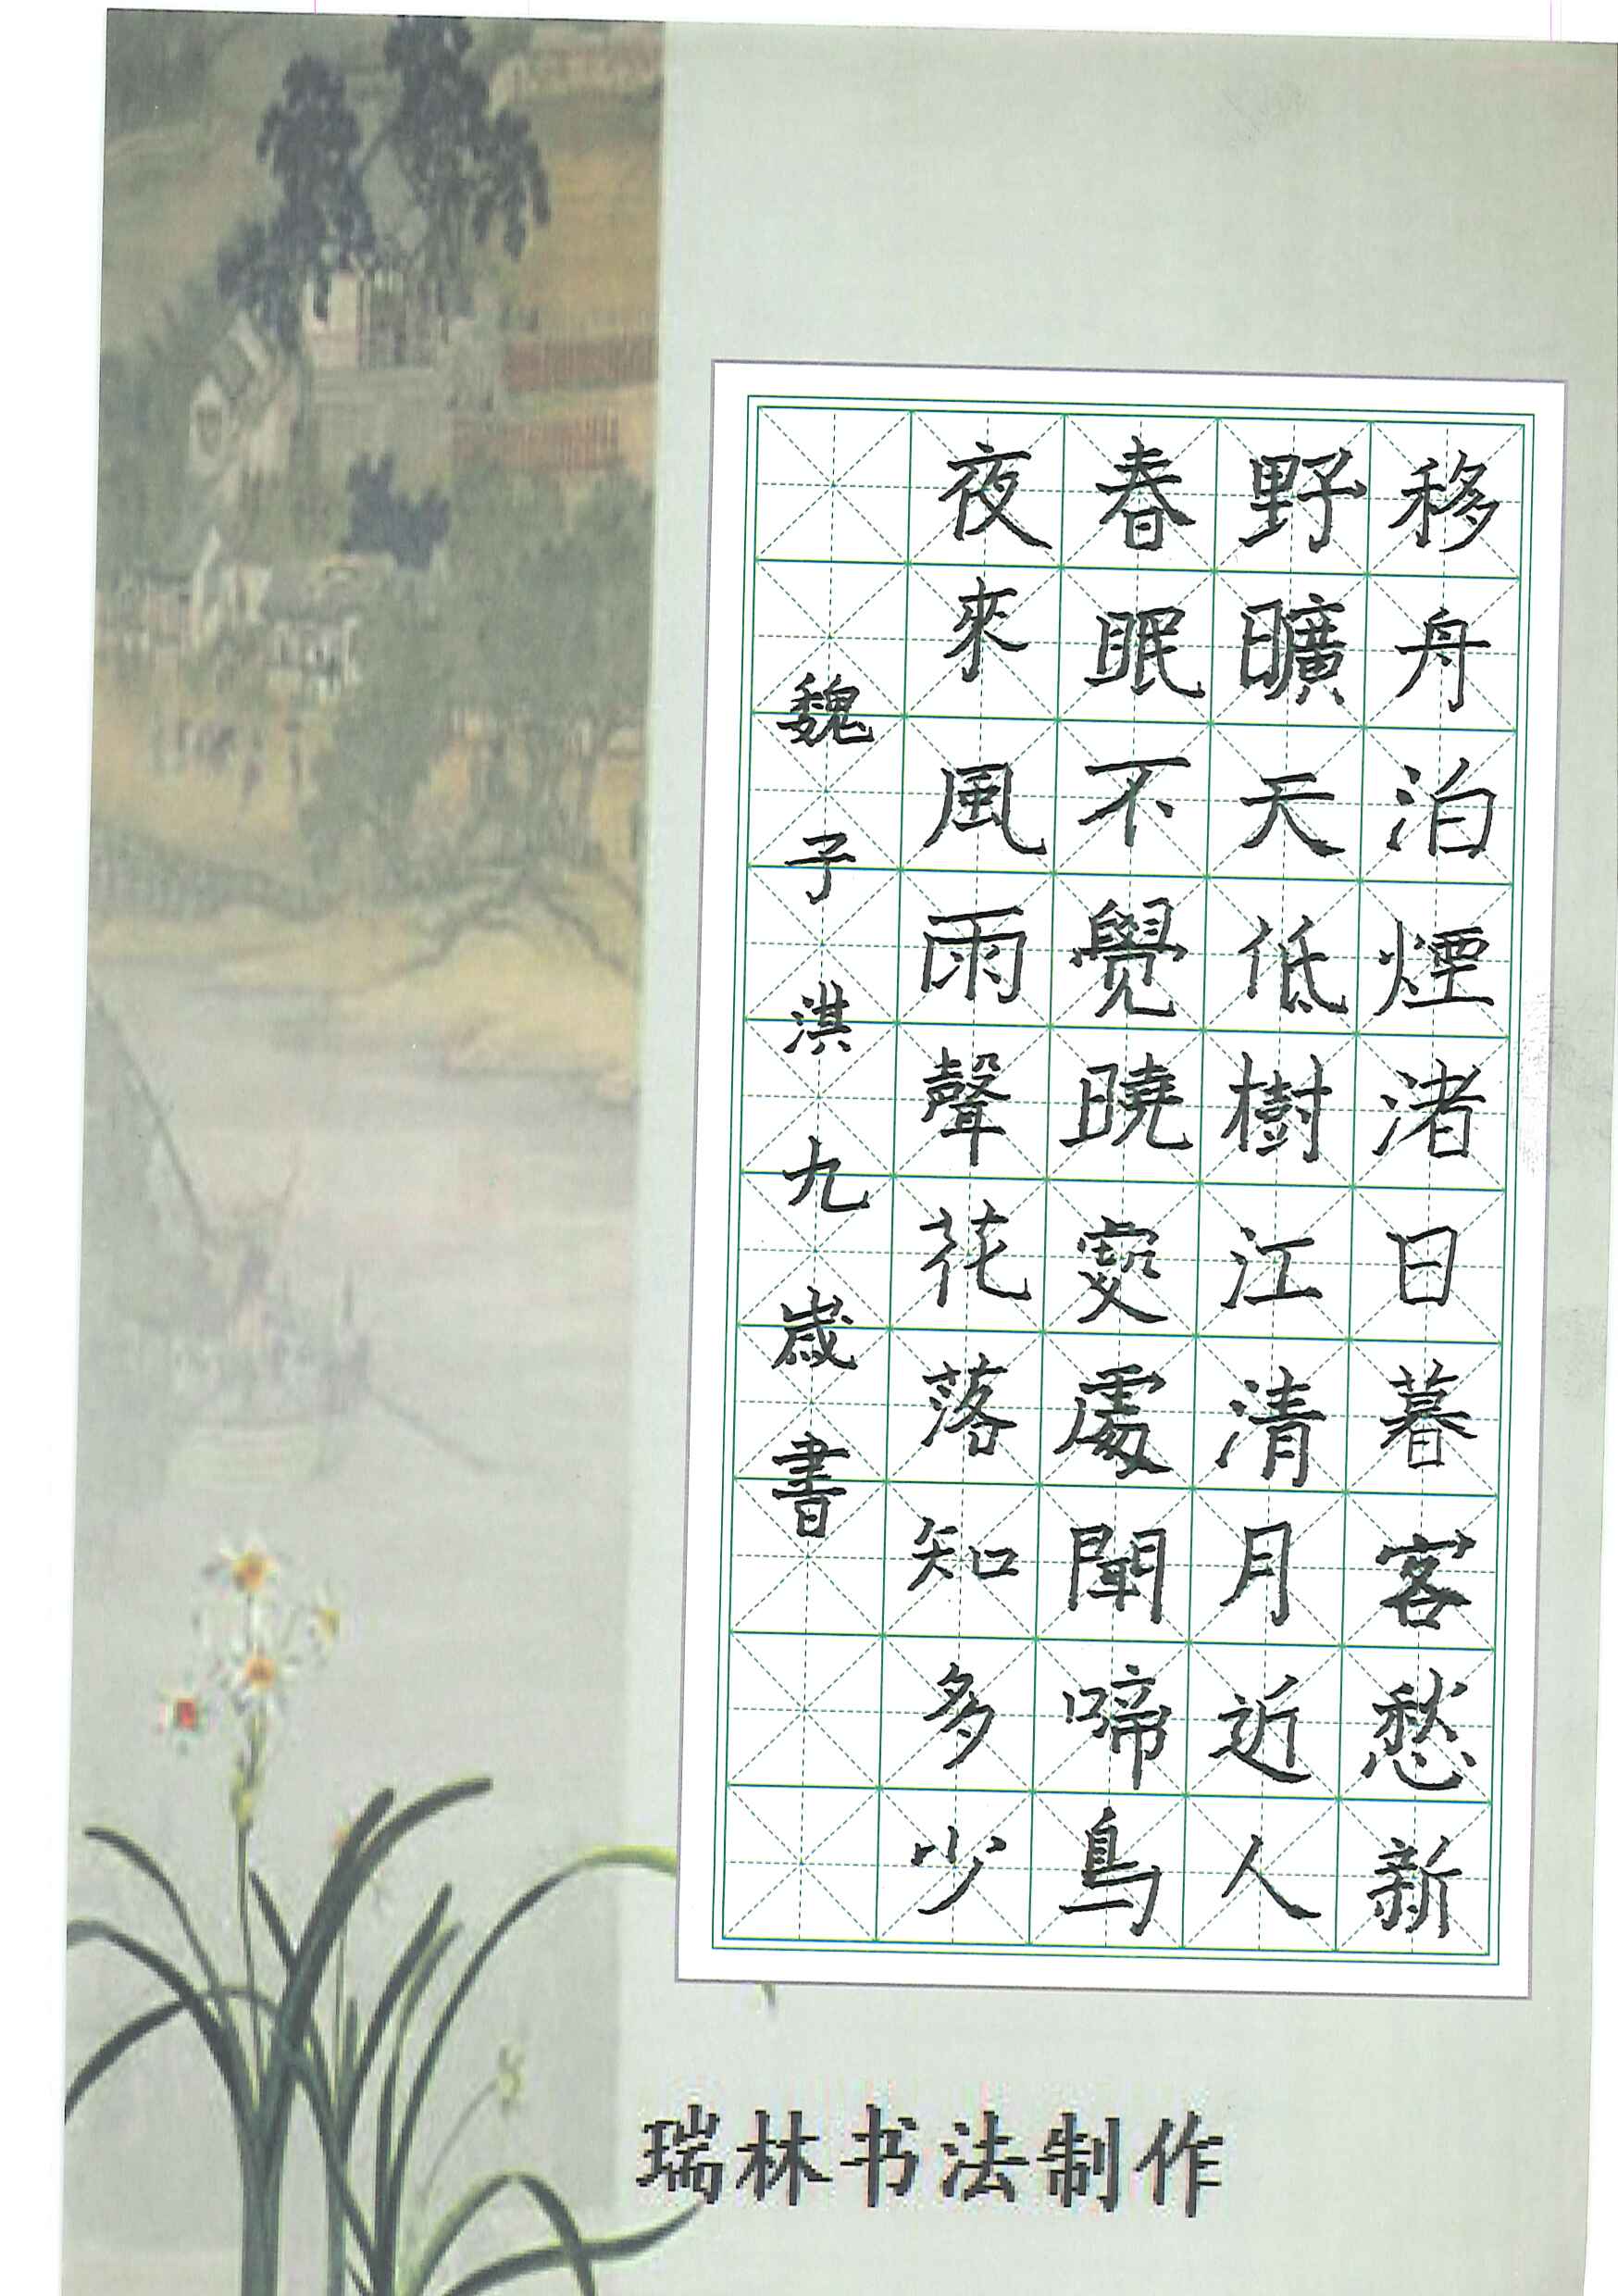 移舟泊煙渚日暮客愁新
野曠天低樹江清月近人
春眠不覺曉處處聞啼鳥
夜來風雨聲花落知多少
魏子淇九歲書
瑞林书法制作